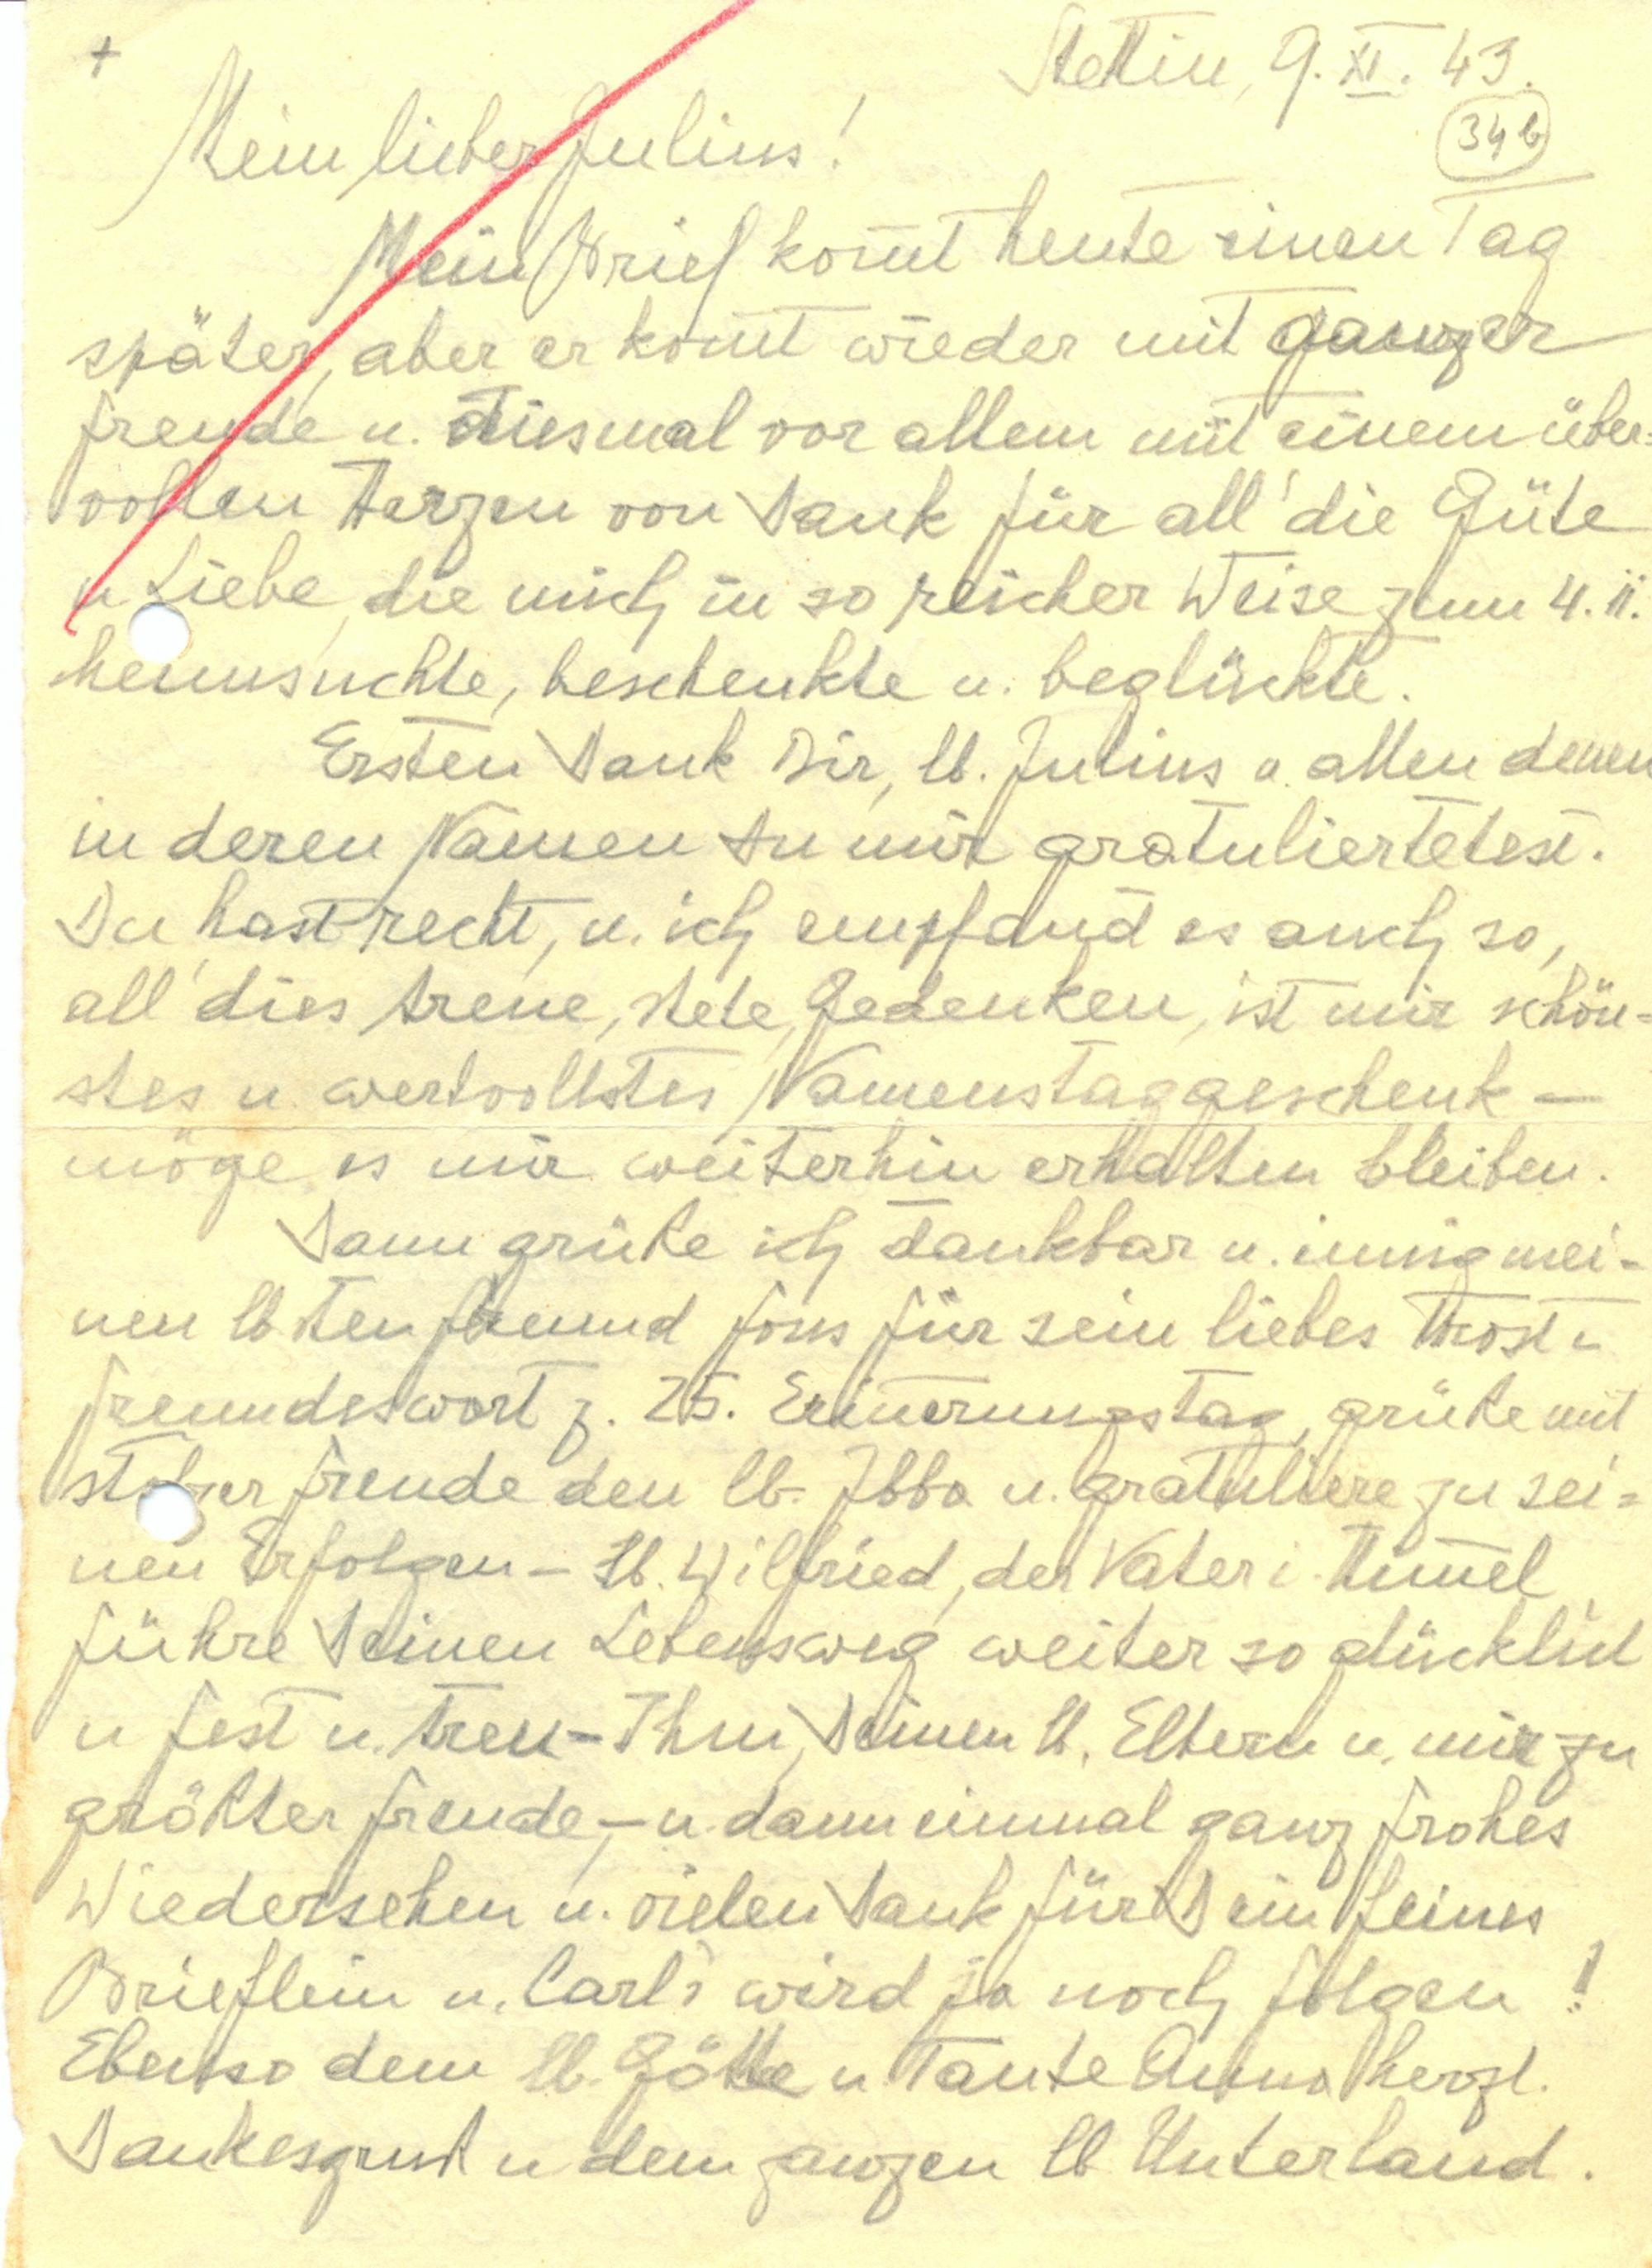 +
Stettin, 9. XI. 43.
34 b
Mein lieber Julius!
Mein Brief kom̄t heute einen Tag
später, aber er kom̄t wieder mit ganzer
Freude u. diesmal vor allem mit einem über=
vollen Herzen von Dank für all' die Güte
u Liebe, die mich in so reicher Weise zum 4. 11.
heimsuchte, beschenkte u. beglückte.
Ersten Dank Dir, lb. Julius u. allen denen
in deren Namen Du mir gratuliertetest.
Du hast recht, u. ich empfand es auch so,
all' dies treue, stete Gedenken, ist mir schön=
stes u. wertvollstes Namenstaggeschenk –
möge es mir weiterhin erhalten bleiben.
Dann grüße ich dankbar u. innig mei-
nen lbsten Freund Fons für sein liebes Trost-
freundeswort z. 25. Erin̄erungstag, grüße mit
stolzer Freude den lb. Ibba u. gratuliere zu sei=
nen Erfolgen – lb. Wilfried, der Vater i. Him̄el
führe Deinen Lebensweg weiter so glücklich
u fest u. treu – Ihm, Deinen lb. Eltern u. mir zu
größter Freude, – u dann einmal ganz frohes
Wiedersehen u. vielen Dank für Dein feines
Brieflein u. Carl's wird ja noch folgen!
Ebenso dem lb. Götte u Tante Anna herzl.
Dankesgruß u dem ganzen lb Unterland.